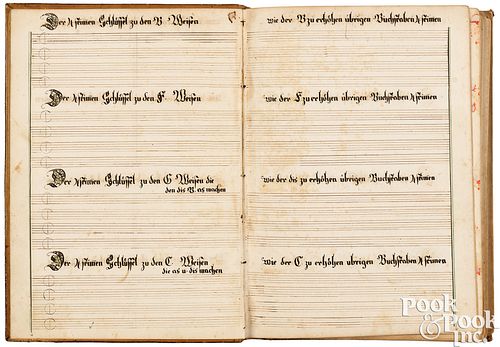 Der 4 stimen Schlüssel zu den B Weisen
wie der B zu erhöhen übrigen Buchstaben 4 stimen
Der 4 stimen Schlüssel zu den F Weisen
wie der F zu erhöhen übrigen Buchstaben 4 stimen
Der 4 stimen Schlüssel zu den G Weisen die
den dis B as machen
wie der dis zu erhöhen übrigen Buchstaben 4 stimen
Der 4 stimen Schlüssel zu den C Weisen
die as u dis machen
wie der C zu erhöhen übrigen Buchstaben 4 stimen
POOK
& POOK
INC.